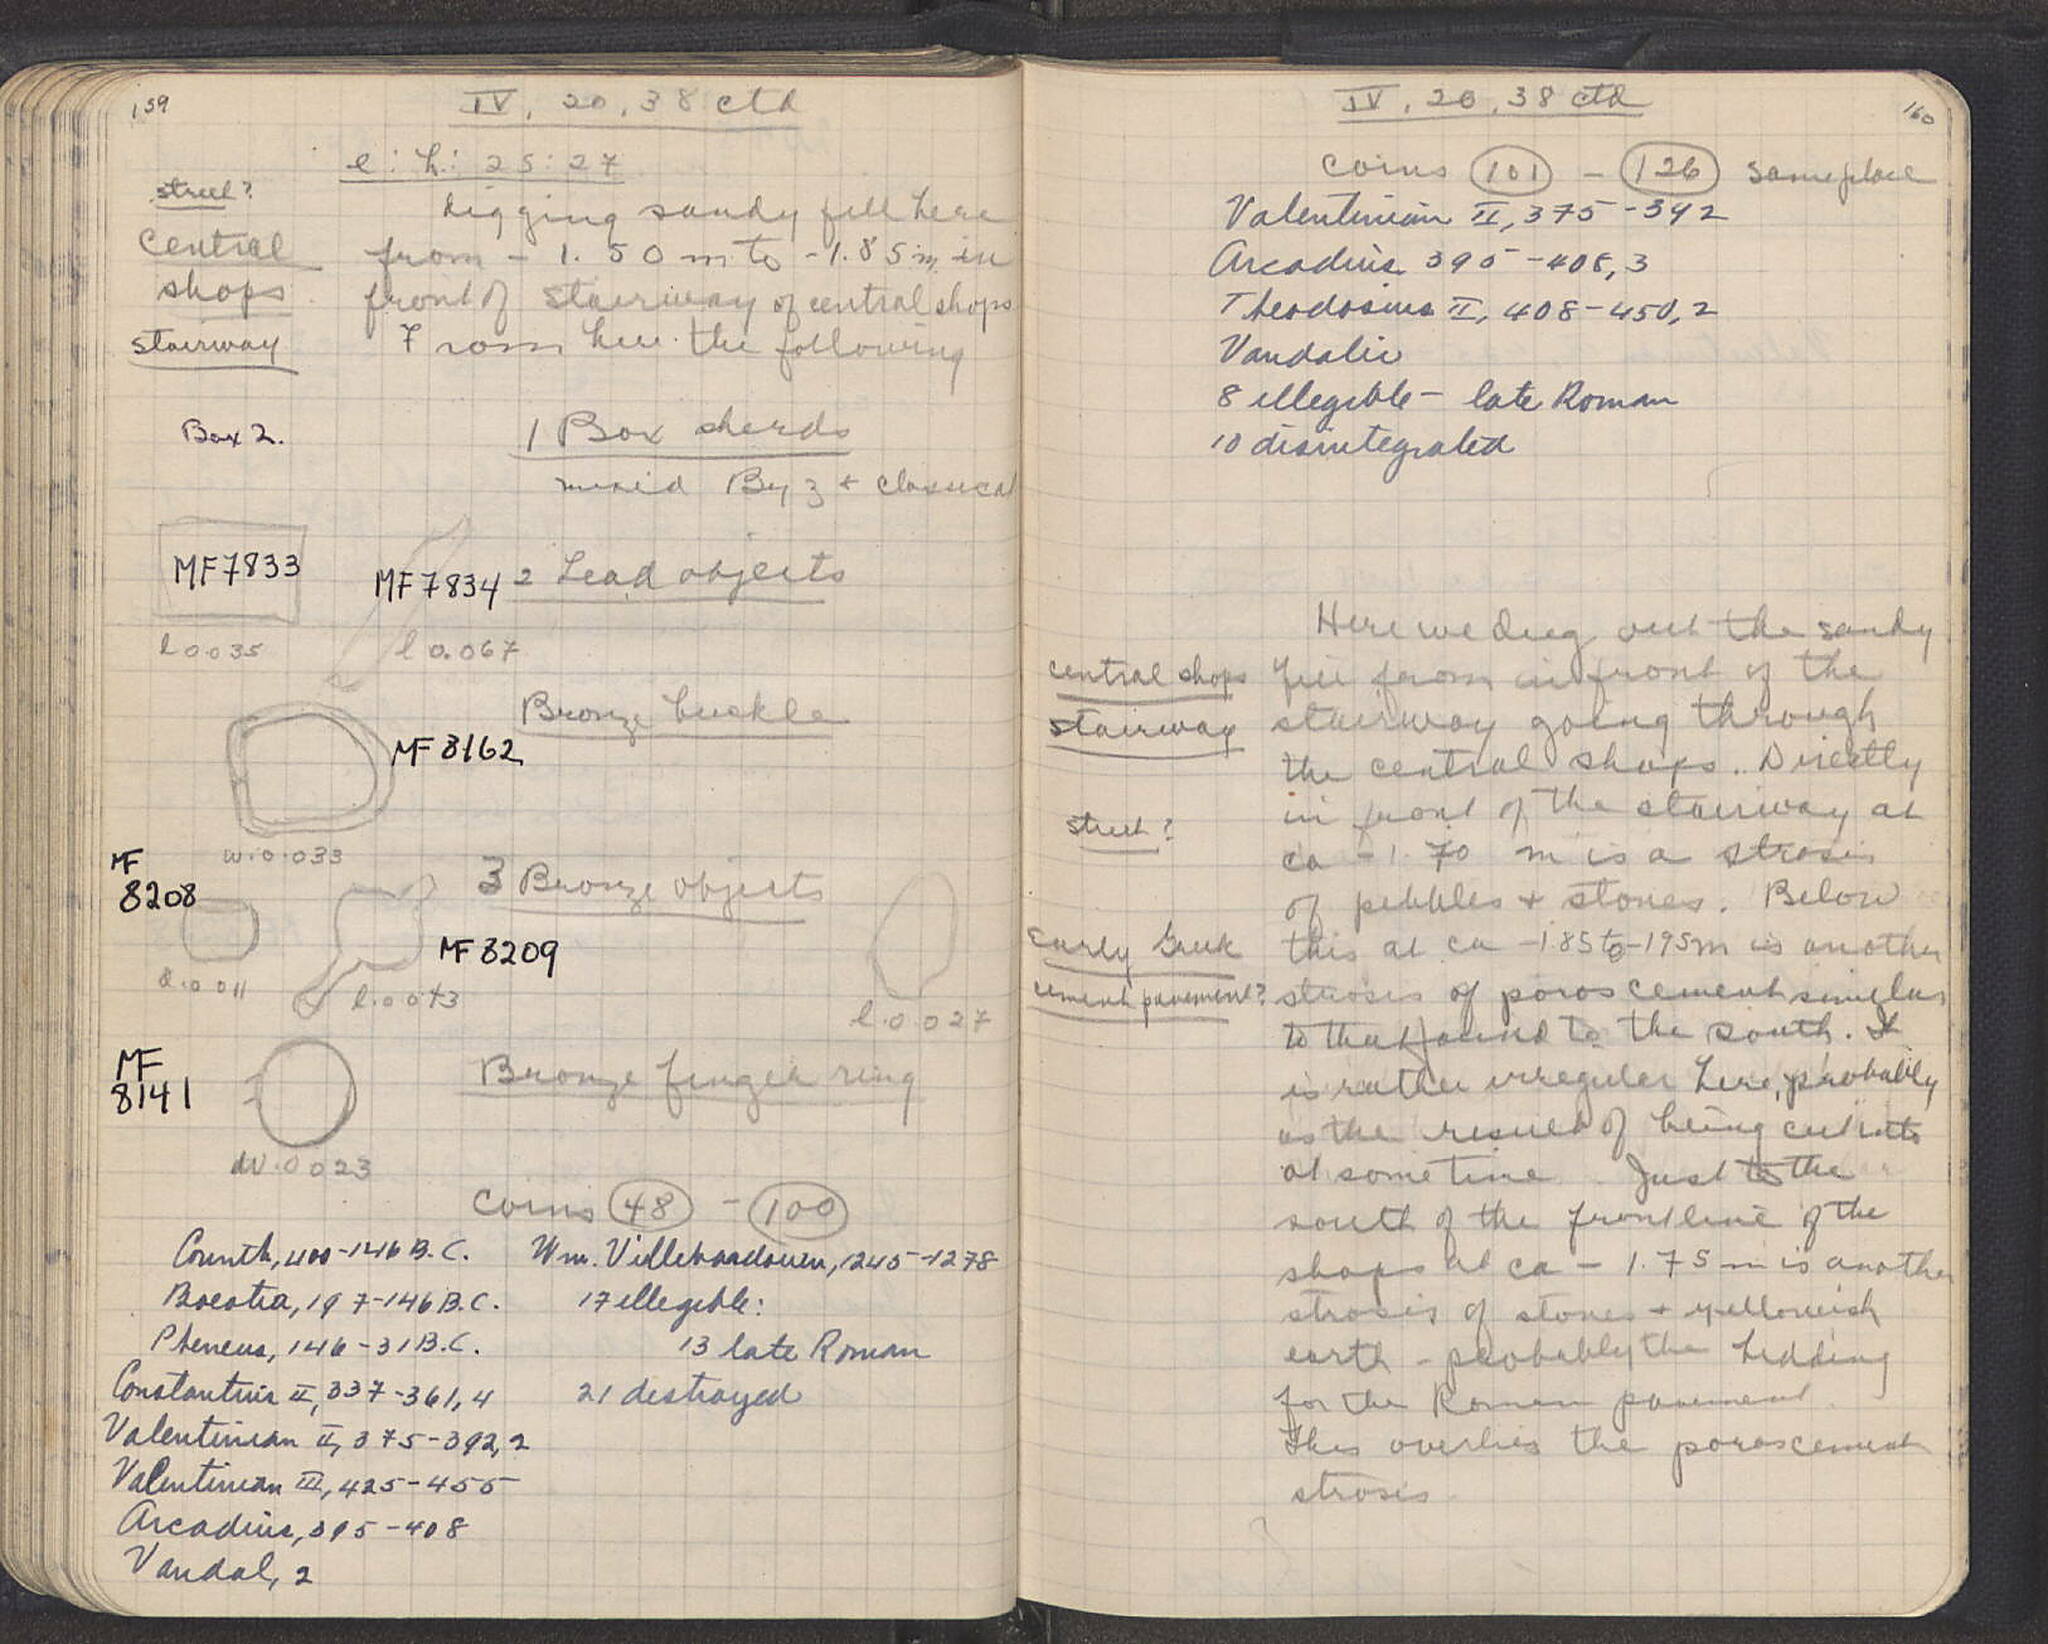 159
IV, 20, 38 ctd
e: h: 25:27
street?
Central
shops
stairway
Digging sandy fill here
from - 1.50 m to -1.85 m in
front of stairway of central shops
From here the following
Box 2.
1 Box sherds
mixed Byz + classical
MF7833
MF7834
2 Lead objects
l 0.035
l 0.067
Bronze buckle
MF 8162
w. 0.033
MF
8208
3 Bronze objects
MF 8209
l. 0.043
l. 0.027
MF
8141
Bronze finger ring
0.023
Coins 48 - 100
Corinth, 400-146 B.C.
Boeotia, 197-146 B.C.
Pheneus, 146-31 B.C.
Constantius II, 337-361, 4
Valentinian II, 375-392, 2
Valentinian III, 425-455
Arcadius, 395-408
Vandal, 2
Wm. Villehardouin, 1245-1278
17 illegible:
13 late Roman
21 destroyed
160
IV, 20, 38 ctd
Coins 101 - 126 same place
Valentinian II, 375-392
Arcadius 395-408, 3
Theodosius II, 408-450, 2
Vandalic
8 illegible - late Roman
10 disintegrated
central shops
stairway
street?
early Greek
cement pavement?
Here we dug out the sandy
fill from in front of the
stairway going through
the central shops. Directly
in front of the stairway at
ca - 1.70 m is a strosis
of pebbles + stones. Below
this at ca -1.85 to -195m is another
strosis of poros cement similar
to that found to the south. It
is rather irregular here, probably
as the result of being cut into
at some time. Just to the
south of the front line of the
shops at ca - 1.75 m is another
strosis of stones + yellowish
earth - probably the bedding
for the Roman pavement.
This overlies the poros cement
strosis.